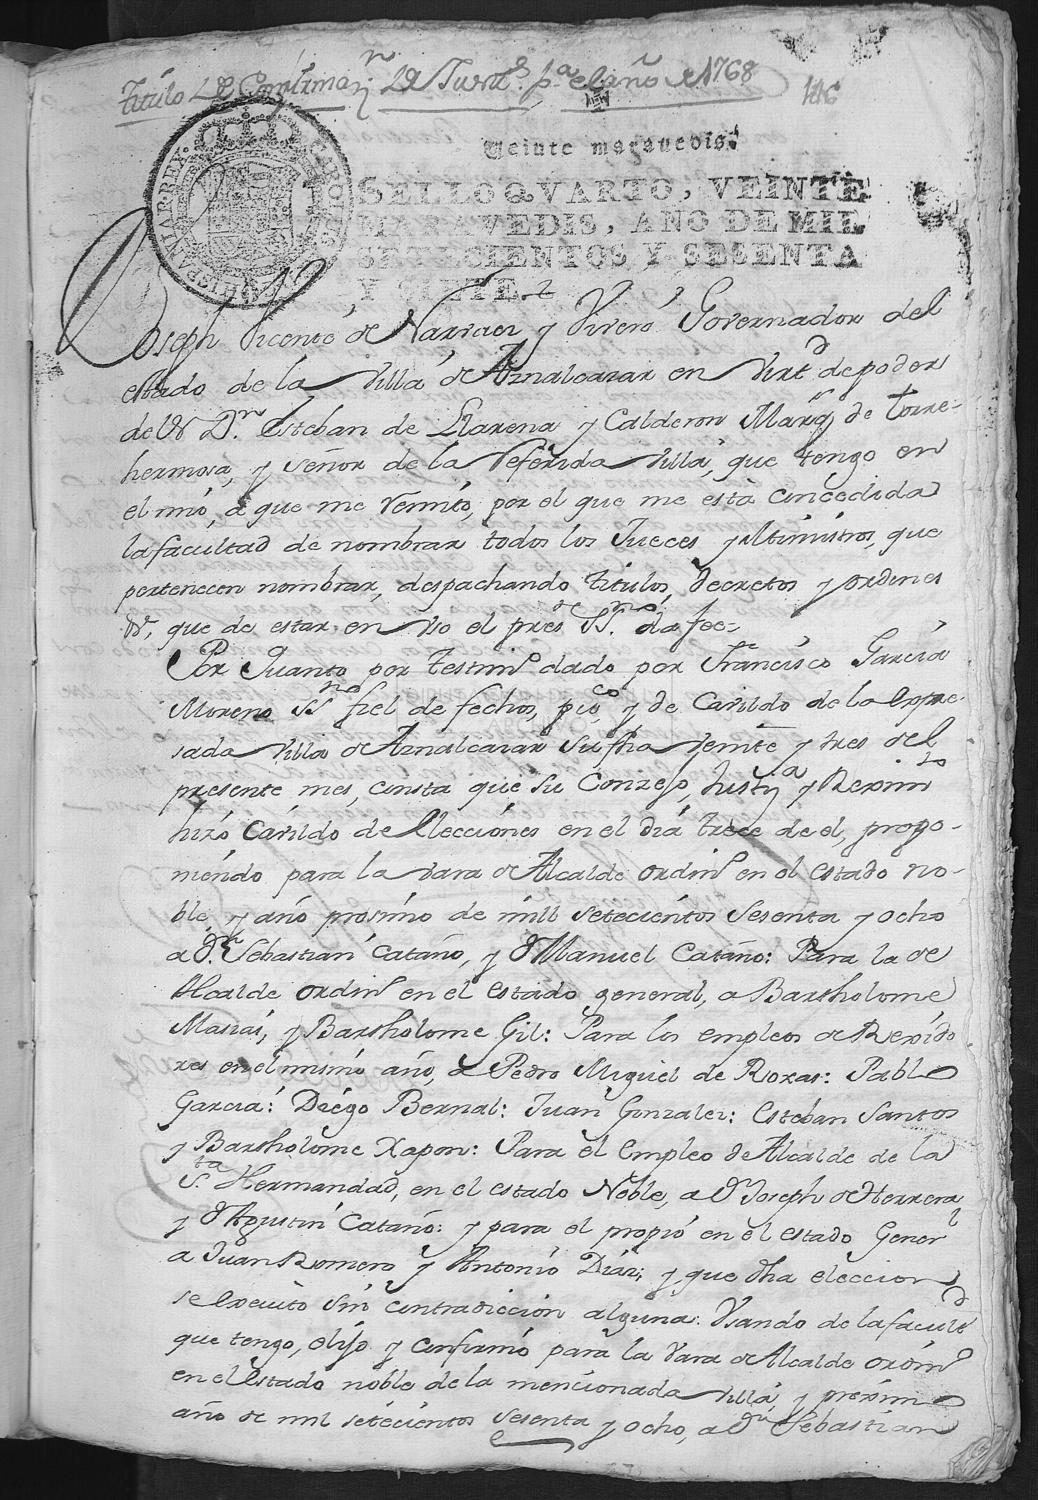 Titulo de Confirmaⁿ de Justˢ. pᵃ el año de 1768
116
Veinte maravedis.
SELLO QVARTO, VEINTE
MARAVEDIS, AÑO DE MIL
SETECIENTOS Y SESENTA
Y SIETE.
Joseph Vicente de Narvaez y Vivero Governador del
estado de la Villa de Aznalcazar en virtᵈ de poder
de Dⁿ. Esteban de Llarena y Calderon Marqˢ de Torre-
hermosa, y Señor de la referida Villa, que tengo en
el mio, a que me remito, por el que me està concedida
la facultad de nombrar todos los Jueces y Ministros, que
pertenecen nombrar, despachando titulos, decretos y ordenes
&, que de estar en uso el presᵗᵉ SSⁿᵒ. da fee-
Por Quanto por testimᵒ dado por Franᶜᵒ Garcia
Moreno SSⁿᵒ fiel de fechos, pcᵒ y de Cavildo de la expre-
sada Villa de Aznalcazar su fha veinte y tres del
presente mes, consta que su Conzejo, Justyᵃ y Reximᵗᵒ
hizo Cavildo de Elecciones en el dia trece de el, propo-
niendo para la vara de Alcalde ordinᵒ en el estado no-
ble, y año proximo de mill setecientos sesenta y ocho
a Dⁿ. Sebastian Cataño, y D Manuel Cataño: Para la de
Alcalde ordinᵒ en el estado general, a Bartholome
Masias, y Bartholome Gil: Para los empleos de Rexido
res en el mismo año, a Pedro Miguel de Roxas: Pablo
Garcia: Diego Bernal: Juan Gonzalez: Esteban Santos
y Bartholome Xapon: Para el Empleo de Alcalde de la
Sᵗᵃ. Hermandad, en el estado Noble, a Dⁿ Joseph de Herrera
y D Agustin Cataño: y para el propio en el estado Generˡ
a Juan Romero y Antonio Diaz; y que dha eleccion
se executò sin contradiccion alguna: Usando de la facultᵈ
que tengo, elijo y confirmo para la vara de Alcalde ordinᵒ
en el Estado noble de la mencionada Villa, y proximo
año de mil setecientos sesenta y ocho, a Dⁿ Sebastian